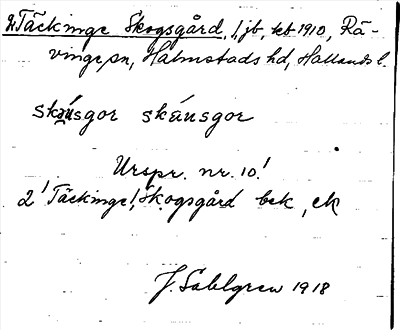 2 Täckinge Skogsgård, 1/1 jb, kb 1910, Rä-
vinge sn, Halmstads hd, Hallands l.
skåsgor skånsgor
Urspr. nr. 10!
2 ! Täckinge!, Skogsgård bek, ek
J. Sahlgren 1918